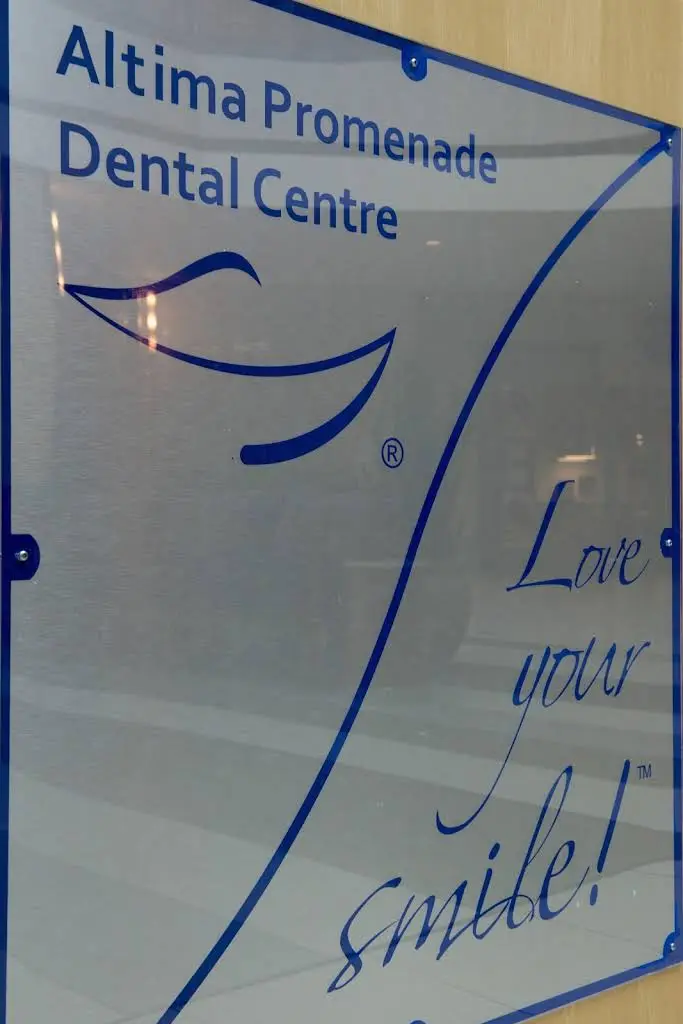 Altima Promenade
Dental Centre
®
Love
your
smile!™